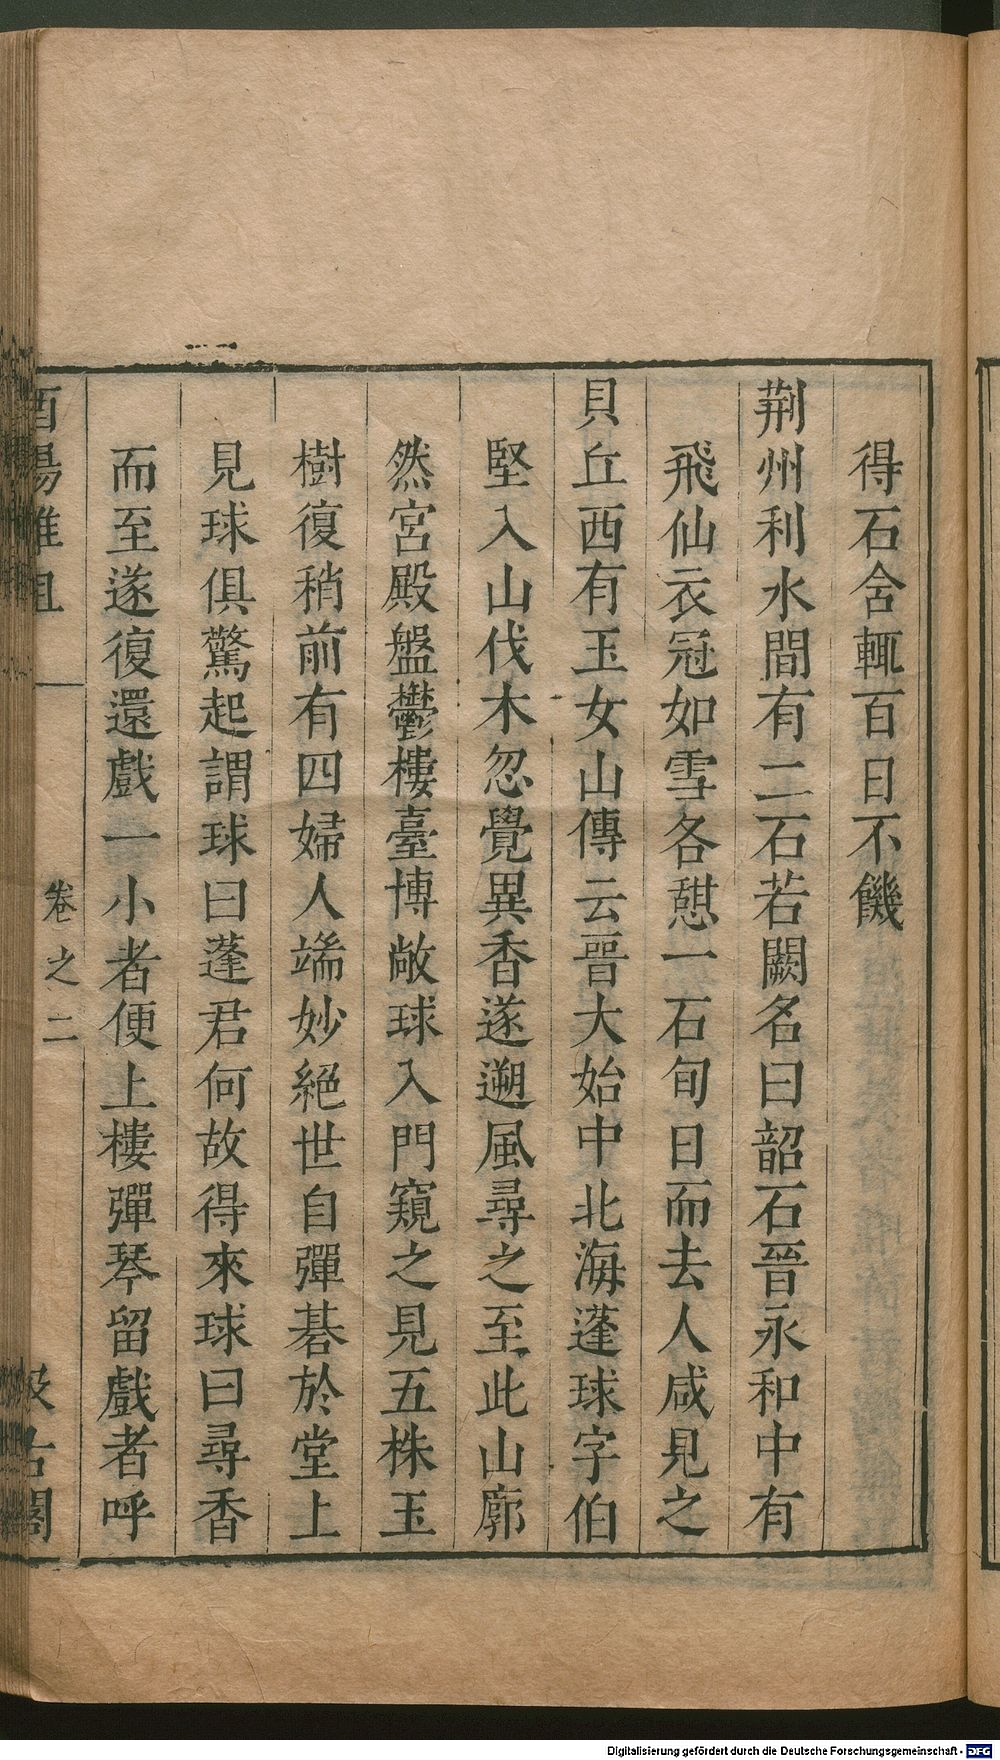 得石舍輒百日不饑
荆州利水間有二石若闕名曰韶石晉永和中有
飛仙衣冠如雪各憇一石旬日而去人咸見之
貝丘西有玉女山傳云晉大始中北海蓬球字伯
堅入山伐木忽覺異香遂遡風尋之至此山廓
然宮殿盤鬱樓臺博敞球入門窺之見五株玉
樹復稍前有四婦人端妙絕世自彈碁於堂上
見球俱驚起謂球曰蓬君何故得來球曰尋香
而至遂復還戲一小者便上樓彈琴留戲者呼
酉陽雜俎
卷之二
汲古閣
Digitalisierung gefördert durch die Deutsche Forschungsgemeinschaft - DFG